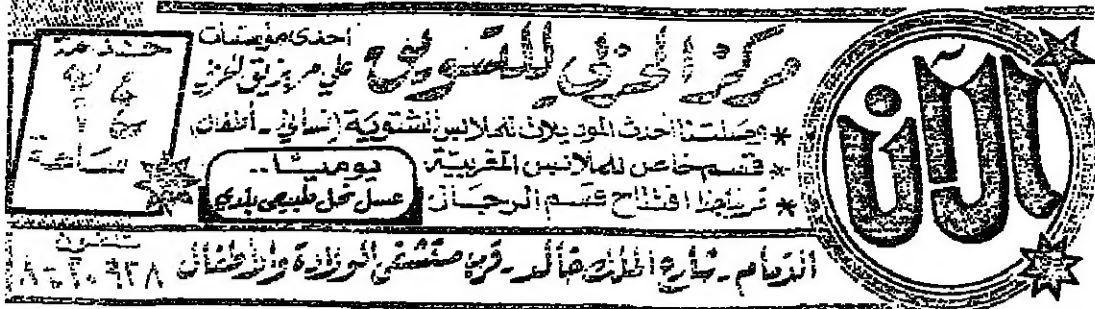 الآن
مركز الحزبي للتسويق
احدى مؤسسات
علي مرزوق الحزبي
خدمة
٢٤
ساعة
* وصلتنا أحدث الموديلات للملابس الشتوية (نسائي - أطفال)
* قسم خاص للملابس المغربية.
* قريباً جداً افتتاح قسم الرجال
يومياً..
عسل نحل طبيعي بلدي
الدمام - شارع الملك خالد - قرب مستشفى الولادة والأطفال
تلفون